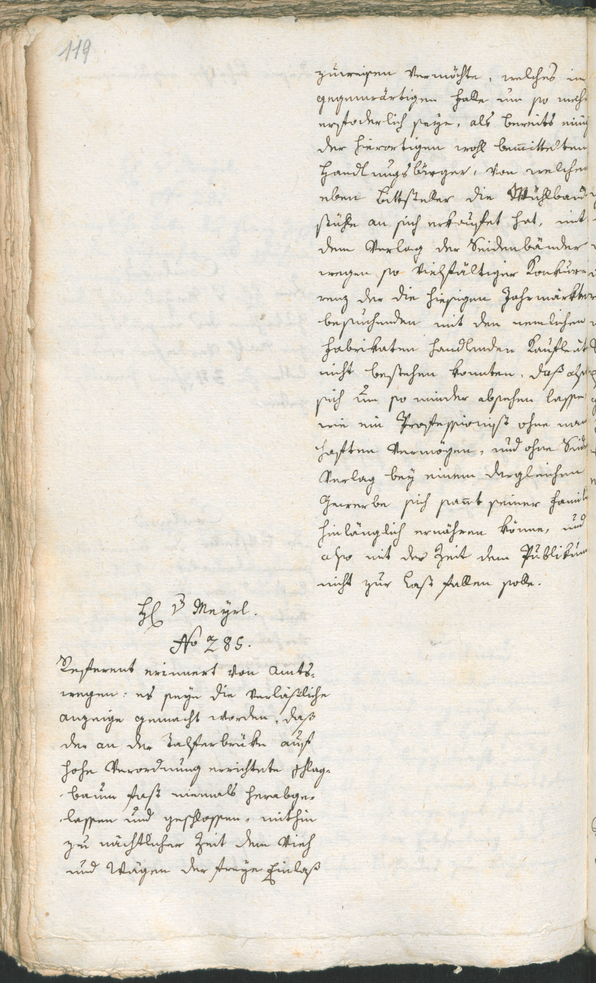 119
zuweisen vermöchte, welches im
gegenwärtigen Falle um so mehr
erfoderlich seye, als bereits einig
der hierortigen wohl bemittelten
Handlungsbürger, von welchen
eben Bittsteller die Mühlband
stühle an sich erkaufet hat, mit
dem Verlag der Seidenbänder
wegen so vielfältiger Konkur
renz der die hiesigen Jahrmärkte
besuchenden mit den nemlichen
Fabrikaten handlenden Kaufleut
nicht bestehen konnten, daß also
sich um so minder absehen lasse
wie ein Professionist ohne nam
haften Vermögen, und ohne
Verlag bey einem dergleichen
Gewerbe sich samt seiner Famil
hinlänglich ernähren könne, und
also mit der Zeit dem Publikum
nicht zur Last fallen solle.
H v Meyrl.
No 285.
Referent erinnert von Amts-
wegen: es seye die verläßliche
anzeige gemacht worden, daß
der an der Talferbrüke auf
hohe Verordnung errichtete Schlag-
baum fast niemals herabge-
lassen und geschlossen, mithin
zu nächtlicher Zeit dem Vieh
und Wägen der freye Einlaß